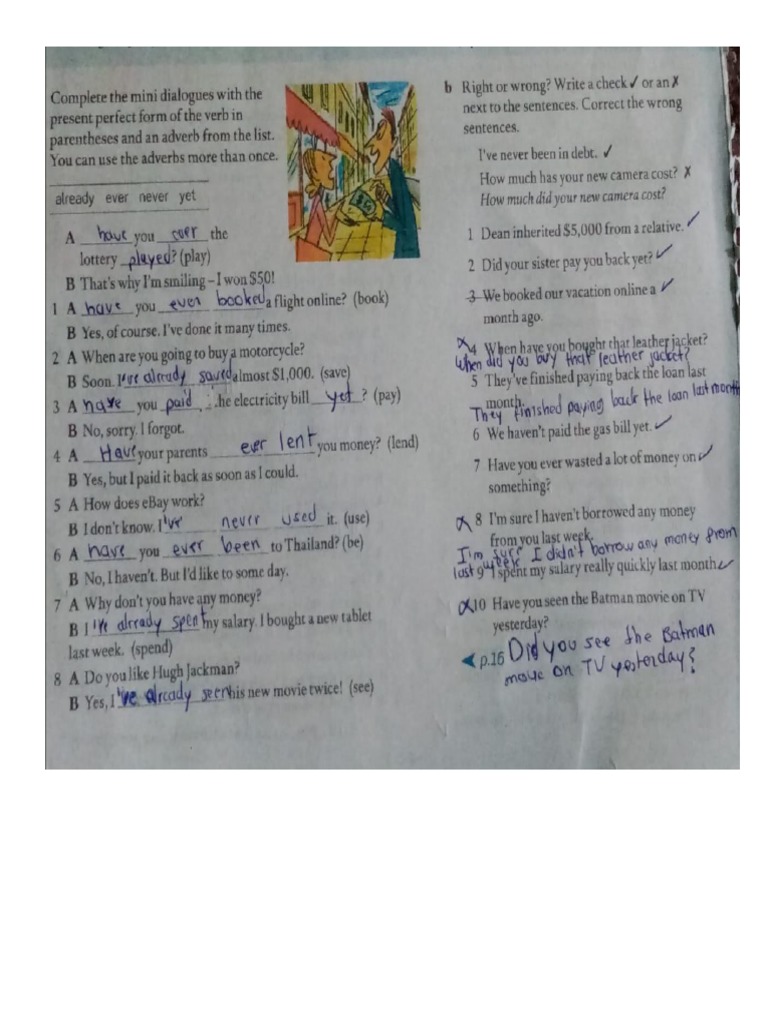 Complete the mini dialogues with the
present perfect form of the verb in
parentheses and an adverb from the list.
You can use the adverbs more than once.
already ever never yet
A have you ever the
lottery played? (play)
B That's why I'm smiling – I won $50!
1 A have you ever booked a flight online? (book)
B Yes, of course. I've done it many times.
2 A When are you going to buy a motorcycle?
B Soon. I've already saved almost $1,000. (save)
3 A have you paid he electricity bill yet? (pay)
B No, sorry. I forgot.
4 A Have your parents ever lent you money? (lend)
B Yes, but I paid it back as soon as I could.
5 A How does eBay work?
B I don't know. I've never used it. (use)
6 A have you ever been to Thailand? (be)
B No, I haven't. But I'd like to some day.
7 A Why don't you have any money?
B I 've already spent my salary. I bought a new tablet
last week. (spend)
8 A Do you like Hugh Jackman?
B Yes, I 've already seen his new movie twice! (see)
b Right or wrong? Write a check ✓ or an ✗
next to the sentences. Correct the wrong
sentences.
I've never been in debt. ✓
How much has your new camera cost? ✗
How much did your new camera cost?
1 Dean inherited $5,000 from a relative. ✓
2 Did your sister pay you back yet? ✓
3 We booked our vacation online a ✓
month ago.
✗ 4 When have you bought that leather jacket?
When did you buy that leather jacket?
5 They've finished paying back the loan last
month.
They finished paying back the loan last month
6 We haven't paid the gas bill yet. ✓
7 Have you ever wasted a lot of money on ✓
something?
✗ 8 I'm sure I haven't borrowed any money
from you last week.
I'm sure I didn't borrow any money from
last week
9 I spent my salary really quickly last month. ✓
✗ 10 Have you seen the Batman movie on TV
yesterday?
◀ p.16 Did you see the Batman
movie on TV yesterday?